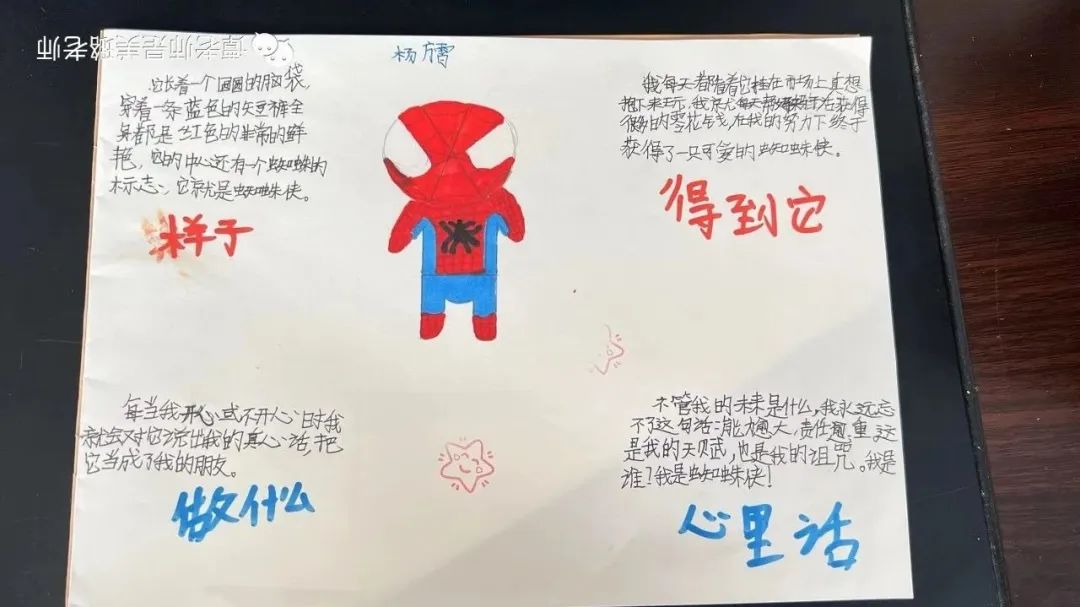 谭老师是美璐老师
杨
它长着一个圆圆的脑袋，
穿着一条蓝色的短裤全
身都是红色的非常的鲜
艳，它的中心还有一个蜘蛛的
标志，它就是蜘蛛侠。
样子
我每天都看着它挂在市场上真想
抱下来玩，我
的零花钱，在我的努力下终于
获得了一只可爱的蜘蛛侠。
得到它
每当我开心或不开心时我
就会对它说出我的真心话，把
它当成了我的朋友。
做什么
不管我的未来是什么，我永远忘
不了这句话：能力越大，责任越重 这
是我的天赋，也是我的诅咒。我是
谁？我是蜘蛛侠！
心里话